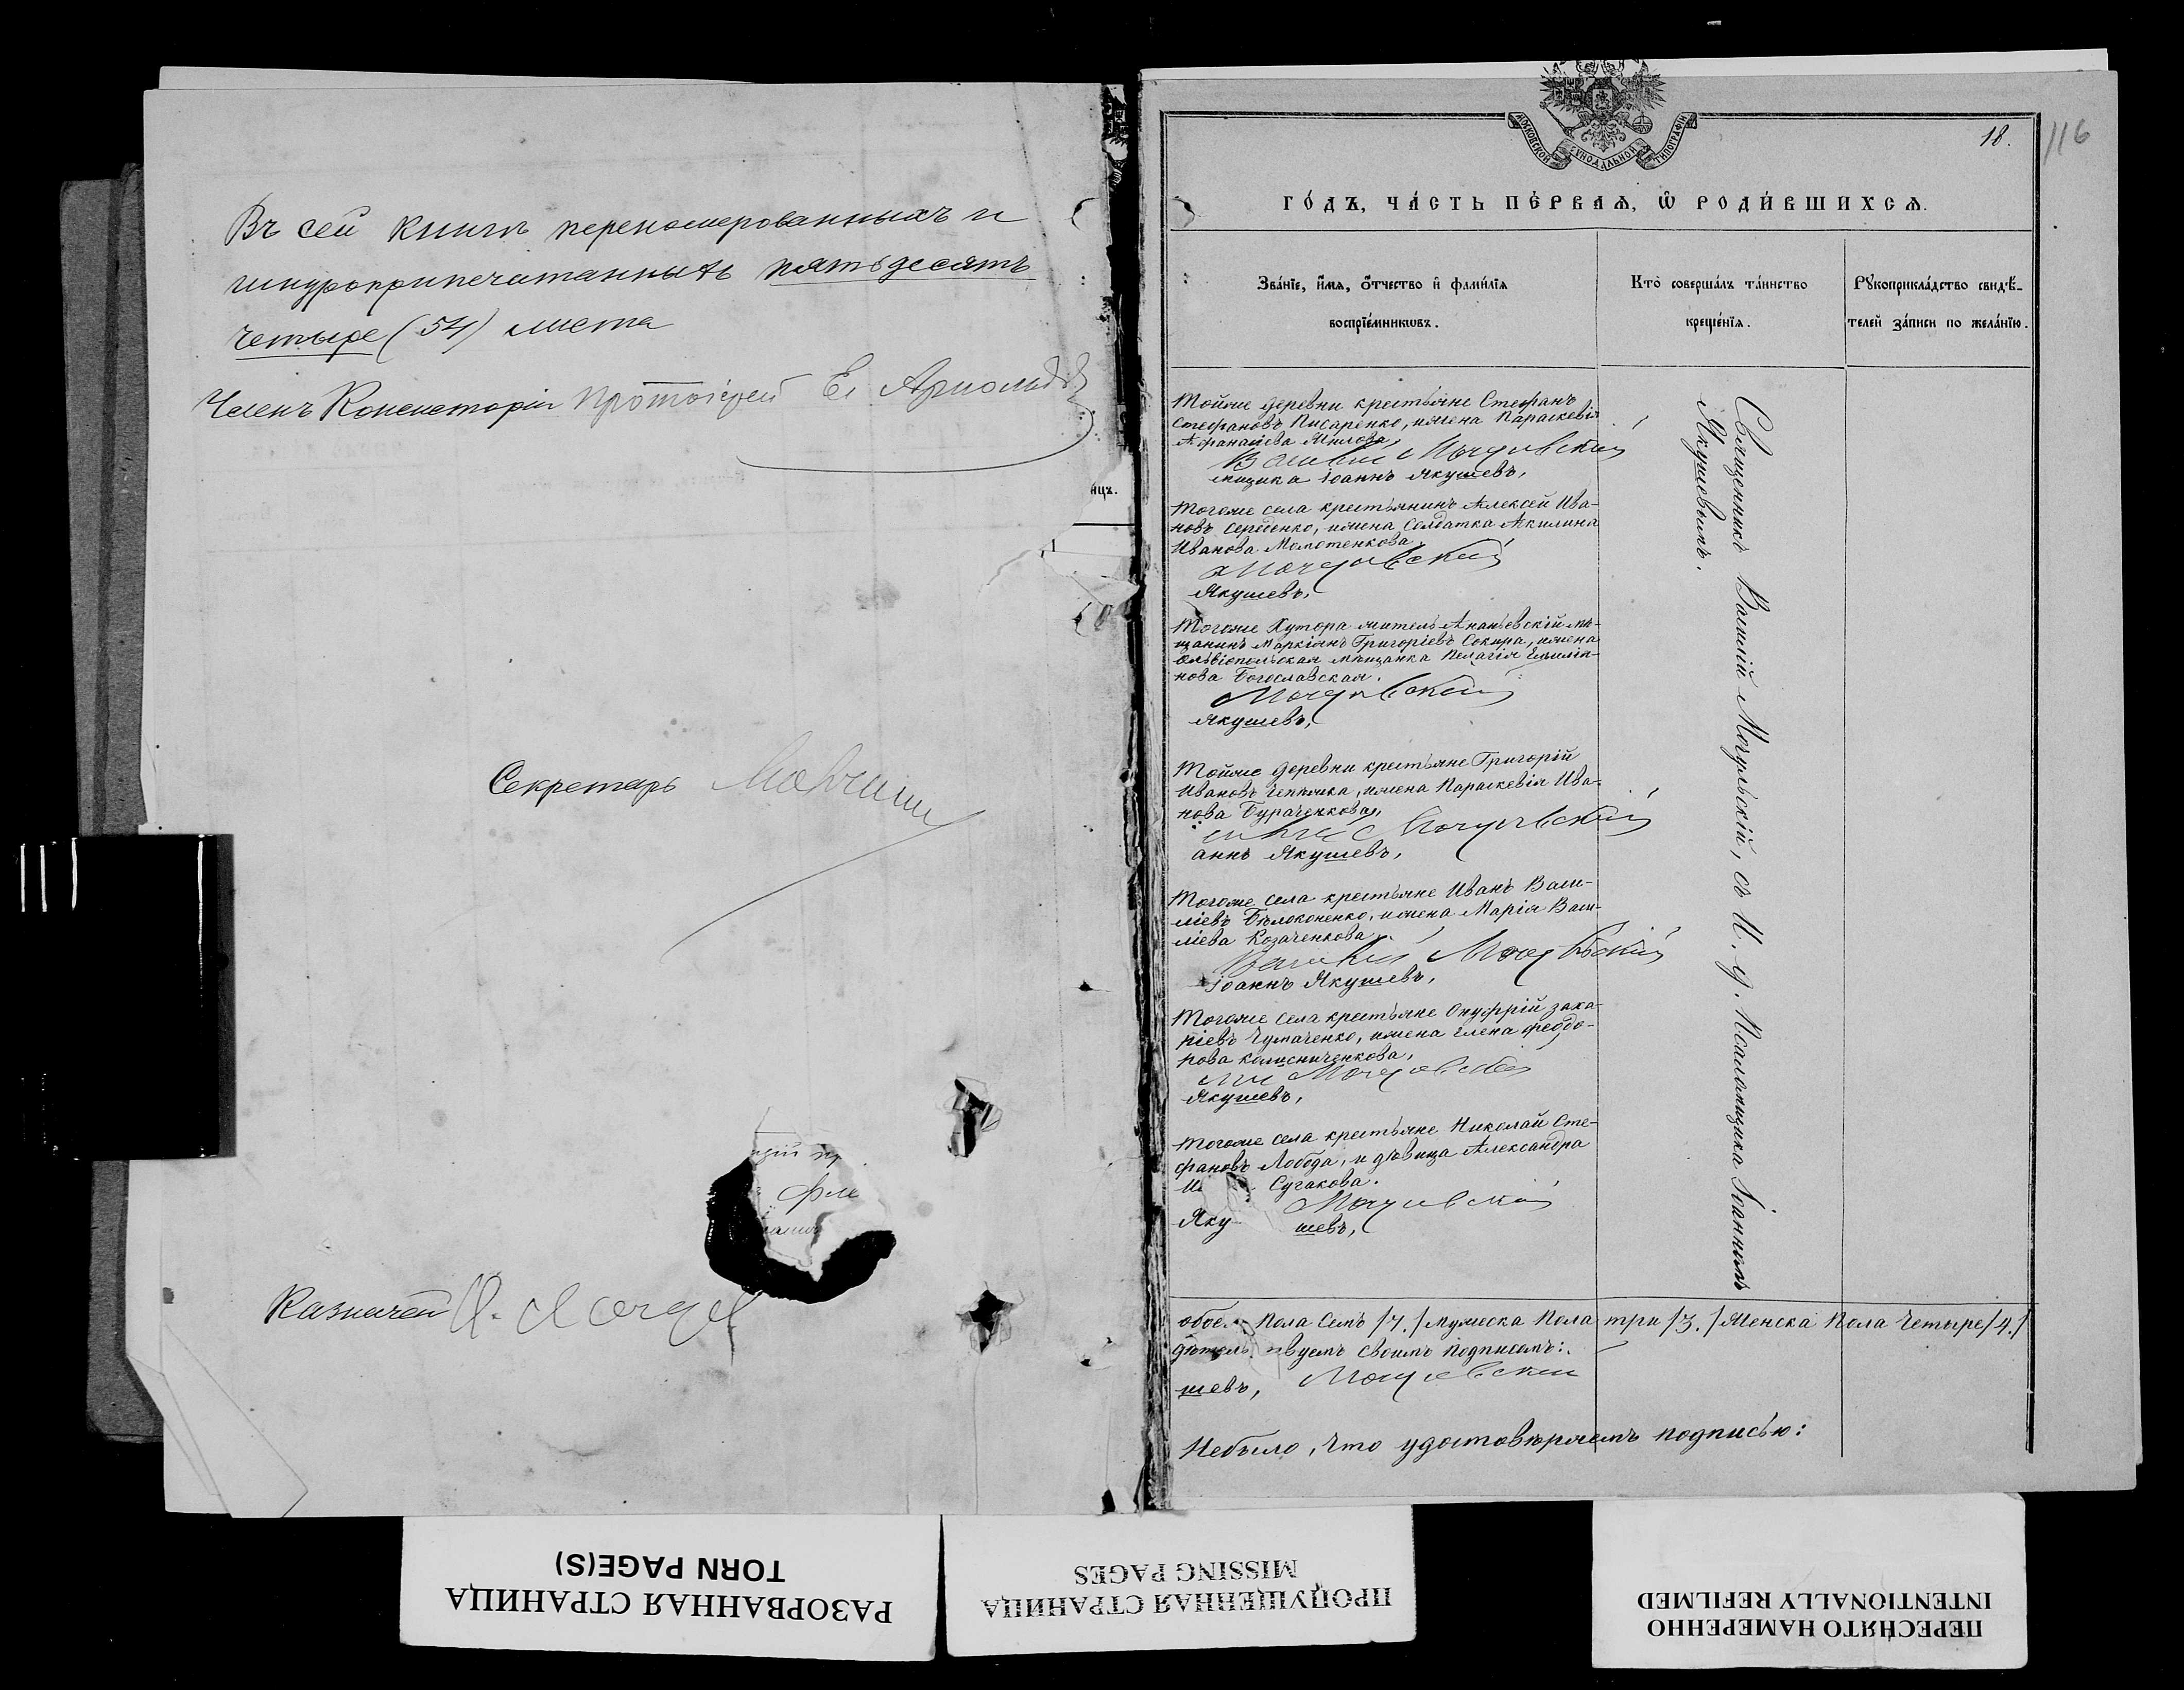 Въ сей книгѣ перенумерованныхъ и
шнуроприпечатанныхъ пятьдесятъ
четыре (54) листа
Членъ Консисторіи Протоіерей Ел Арнольд
нцъ.
Секретарь
Казначей
МОСКОВСКОЙ СѴНОДАЛЬНОЙ ТИПОГРАФІИ
18.
116
ГО́ДЪ, ЧА́СТЬ ПЕ́РВАѦ, Ѡ҆ РОДИ́ВШИХСѦ.
Зва́нїе, и҆́мѧ, ѻ҆́тчество и҆ фами́лїѧ
воспрїе́мникѡвъ.
Кто̀ соверша́лъ та́инство
креще́нїѧ.
Рꙋкоприкла́дство свидѣ́-
телей за́писи по жела́нїю.
Тойже деревни крестьяне Стефанъ
Стефановъ Писаренко, и жена Параскевія
Афанасіева
Василій Мочульскій
мщика Іоаннъ Якушевъ,
Тогоже села крестьянинъ Алексей Ива-
новъ Серденко, и жена Солдатка Акилина
Иванова
Мочульскій
Якушевъ,
Тогоже Хутора житель Ананьевскій мѣ-
щанинъ Маркіянъ Григоріевъ Сокира, и жена
Ольвіопольская мѣщанка Пелагія
нова Богославская.
Мочульскій
Якушевъ,
Тойже деревни крестьяне Григорій
Ивановъ и жена Параскевія Ива-
нова Бураченкова,
Мочульскій
аннъ Якушевъ,
Тогоже села крестьяне Иванъ Васи-
ліевъ Бѣлоконенко, и жена Марія Васи-
ліева Козаченкова.
Василій Мочульскій
Іоаннъ Якушевъ,
Тогоже села крестьяне Онуфрій Заха-
ріевъ Чумаченко, и жена Елена Феодо-
рова Колисниченкова,
Мочульскій
Якушевъ,
Тогоже села крестьяне Николай Сте-
фановъ Лобода, и дѣвица Александра
Сучакова.
Мочульскій
Яку шевъ,
Священникъ Василій Мочульскій, съ И. д. Псаломщика Іоанномъ
Якушевымъ.
обое Пола Семь /7./ Мужеска Пола три /3./ Женска Пола Четыре /4./
дѣтель вуемъ своимъ подписомъ:
шевъ, Мочульскій
Небыло, что удостовѣряемъ подписью:
РАЗОРВАННАЯ СТРАНИЦА
TORN PAGE(S)
ПРОПУЩЕННАЯ СТРАНИЦА
MISSING PAGES
ПЕРЕСНЯТО НАМЕРЕННО
INTENTIONALLY REFILMED